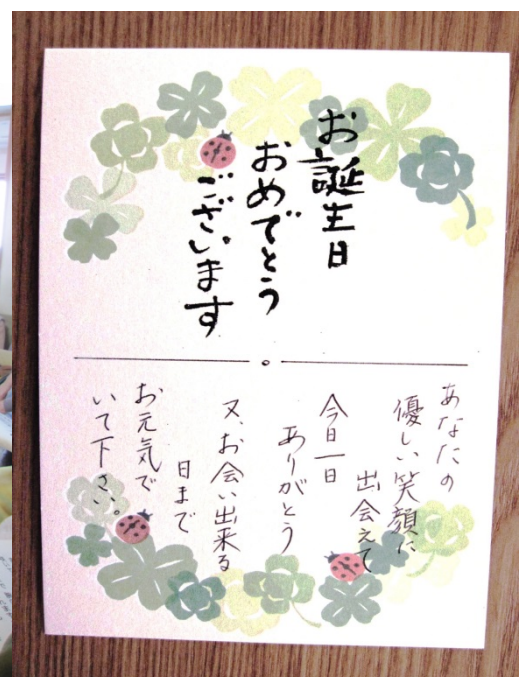 お誕生日
おめでとう
ございます
あなたの
優しい笑顔に
出会えて
今日一日
ありがとう
又、お会い出来る
日まで
お元気で
いて下さい。